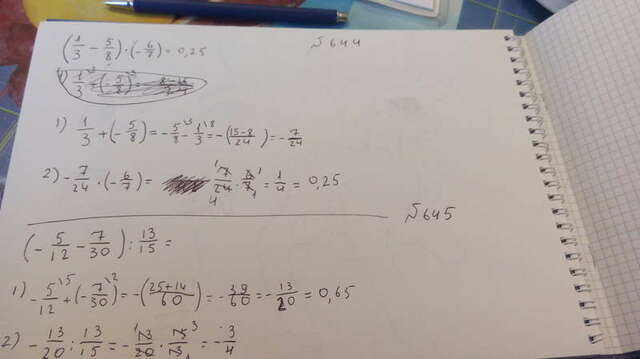 (1/3 - 5/8) · (-6/7) = 0,25
№ 644
1) 1/3 + (-5/8) = -5/8\3 - 1/3\8 = -(15-8/24) = -7/24
2) -7/24 · (-6/7) = 7/24 · 6/7 = 1/4 = 0,25
№ 645
(-5/12 - 7/30) : 13/15 =
1) -5/12\5 + (-7/30)\2 = -(25+14/60) = -39/60 = -13/20 = 0,65
2) -13/20 : 13/15 = -13/20 · 15/13 = -3/4